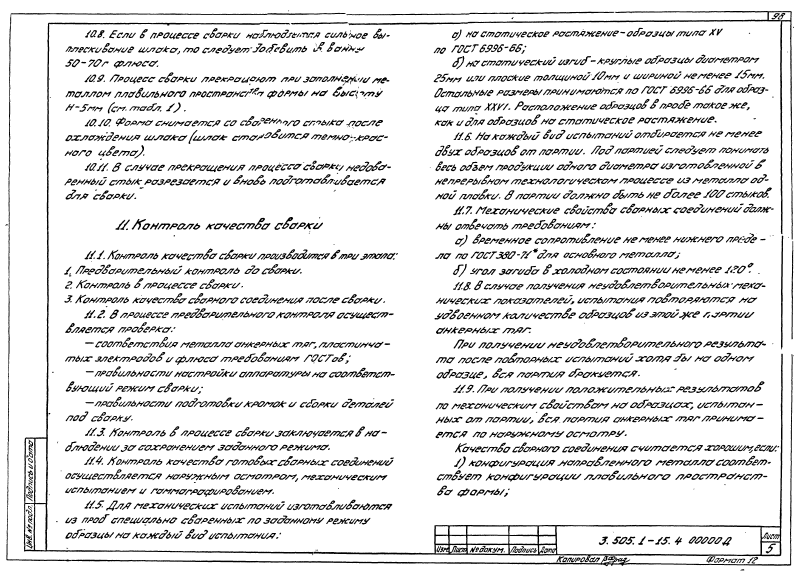 98
10.8. Если в процессе сварки наблюдается сильное вы-
плескивание шлака, то следует добавить в ванну
50-70г флюса.
10.9. Процесс сварки прекращают при заполнении ме-
таллом плавильного пространства формы на высоту
Н-5мм (см. табл. 1).
10.10. Форма снимается со сваренного стыка после
охлаждения шлака (шлак становится темно-крас-
ного цвета).
10.11. В случае прекращения процесса сварки недова-
ренный стык разрезается и вновь подготавливается
для сварки.
11. Контроль качества сварки
11.1. Контроль качества сварки производится в три этапа:
1. Предварительный контроль до сварки.
2. Контроль в процессе сварки.
3. Контроль качества сварного соединения после сварки.
11.2. В процессе предварительного контроля осущест-
вляется проверка:
— соответствия металла анкерных тяг, пластинча-
тых электродов и флюса требованиям ГОСТов;
— правильности настройки аппаратуры на соответст-
вующий режим сварки;
— правильности подготовки кромок и сборки деталей
под сварку.
11.3. Контроль в процессе сварки заключается в на-
блюдении за сохранением заданного режима.
11.4. Контроль качества готовых сварных соединений
осуществляется наружным осмотром, механическим
испытанием и гаммаграфированием.
11.5. Для механических испытаний изготавливаются
из проб специально сваренных по заданному режиму
образцы на каждый вид испытания:
а) на статическое растяжение – образцы типа XV
по ГОСТ 6996-66;
б) на статический изгиб – круглые образцы диаметром
25мм или плоские толщиной 10мм и шириной не менее 15мм.
Остальные размеры принимаются по ГОСТ 6996-66 для образ-
ца типа XXVI. Расположение образцов в пробе такое же,
как и для образцов на статическое растяжение.
11.6. На каждый вид испытаний отбирается не менее
двух образцов от партии. Под партией следует понимать
весь объем продукции одного диаметра изготовленной в
непрерывном технологическом процессе из металла од-
ной плавки. В партии должно быть не более 100 стыков.
11.7. Механические свойства сварных соединений долж-
ны отвечать требованиям:
а) временное сопротивление не менее нижнего преде-
ла по ГОСТ 380-71* для основного металла;
б) угол загиба в холодном состоянии не менее 120°.
11.8. В случае получения неудовлетворительных меха-
нических показателей, испытания повторяются на
удвоенном количестве образцов из этой же партии
анкерных тяг.
При получении неудовлетворительного результа-
та после повторных испытаний хотя бы на одном
образце, вся партия бракуется.
11.9. При получении положительных результатов
по механическим свойствам на образцах, испытан-
ных от партии, вся партия анкерных тяг принима-
ется по наружному осмотру.
Качество сварного соединения считается хорошим, если:
1) конфигурация направленного металла соответ-
ствует конфигурации плавильного пространст-
ва формы;
Инв. № подл. Подпись и дата
Изм. Лист № докум. Подпись Дата
3.505.1-15.4 00000Д
Лист
5
Копировал
Формат 12